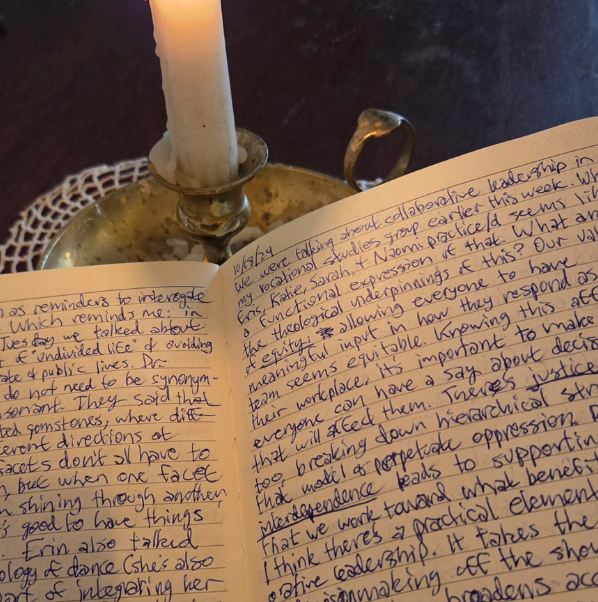 as reminders to interogate
which reminds me: in
Tuesday we talked about
of "undivided life" & avoiding
& public lives. Dr.
do not need to be synonym-
sonant. They said that
gemstones, where diff-
erent directions at
facets don't all have to
but when one facet
shining through another,
good to have things
Erin also talked
ology of dance (she's also
part of integrating her
10/8/24
We were talking about collaborative leadership in
my vocational studies group earlier this week. Wh
Eric, Katie, Sarah, & Naomi practice/d seems lik
a functional expression of that. What ar
the theological underpinnings of this? Our val
of equity: allowing everyone to have
meaningful input in how they respond as
team seems equitable. Knowing this aff
their workplace, it's important to make
everyone can have a say about decis
that will affect them. There's justice
too, breaking down hierarchical str
that model & perpetuate oppression.
interdependence leads to supportin
that we work toward what benefit
I think there's a practical element
orative leadership. It takes the
making off the shou
broadens acc